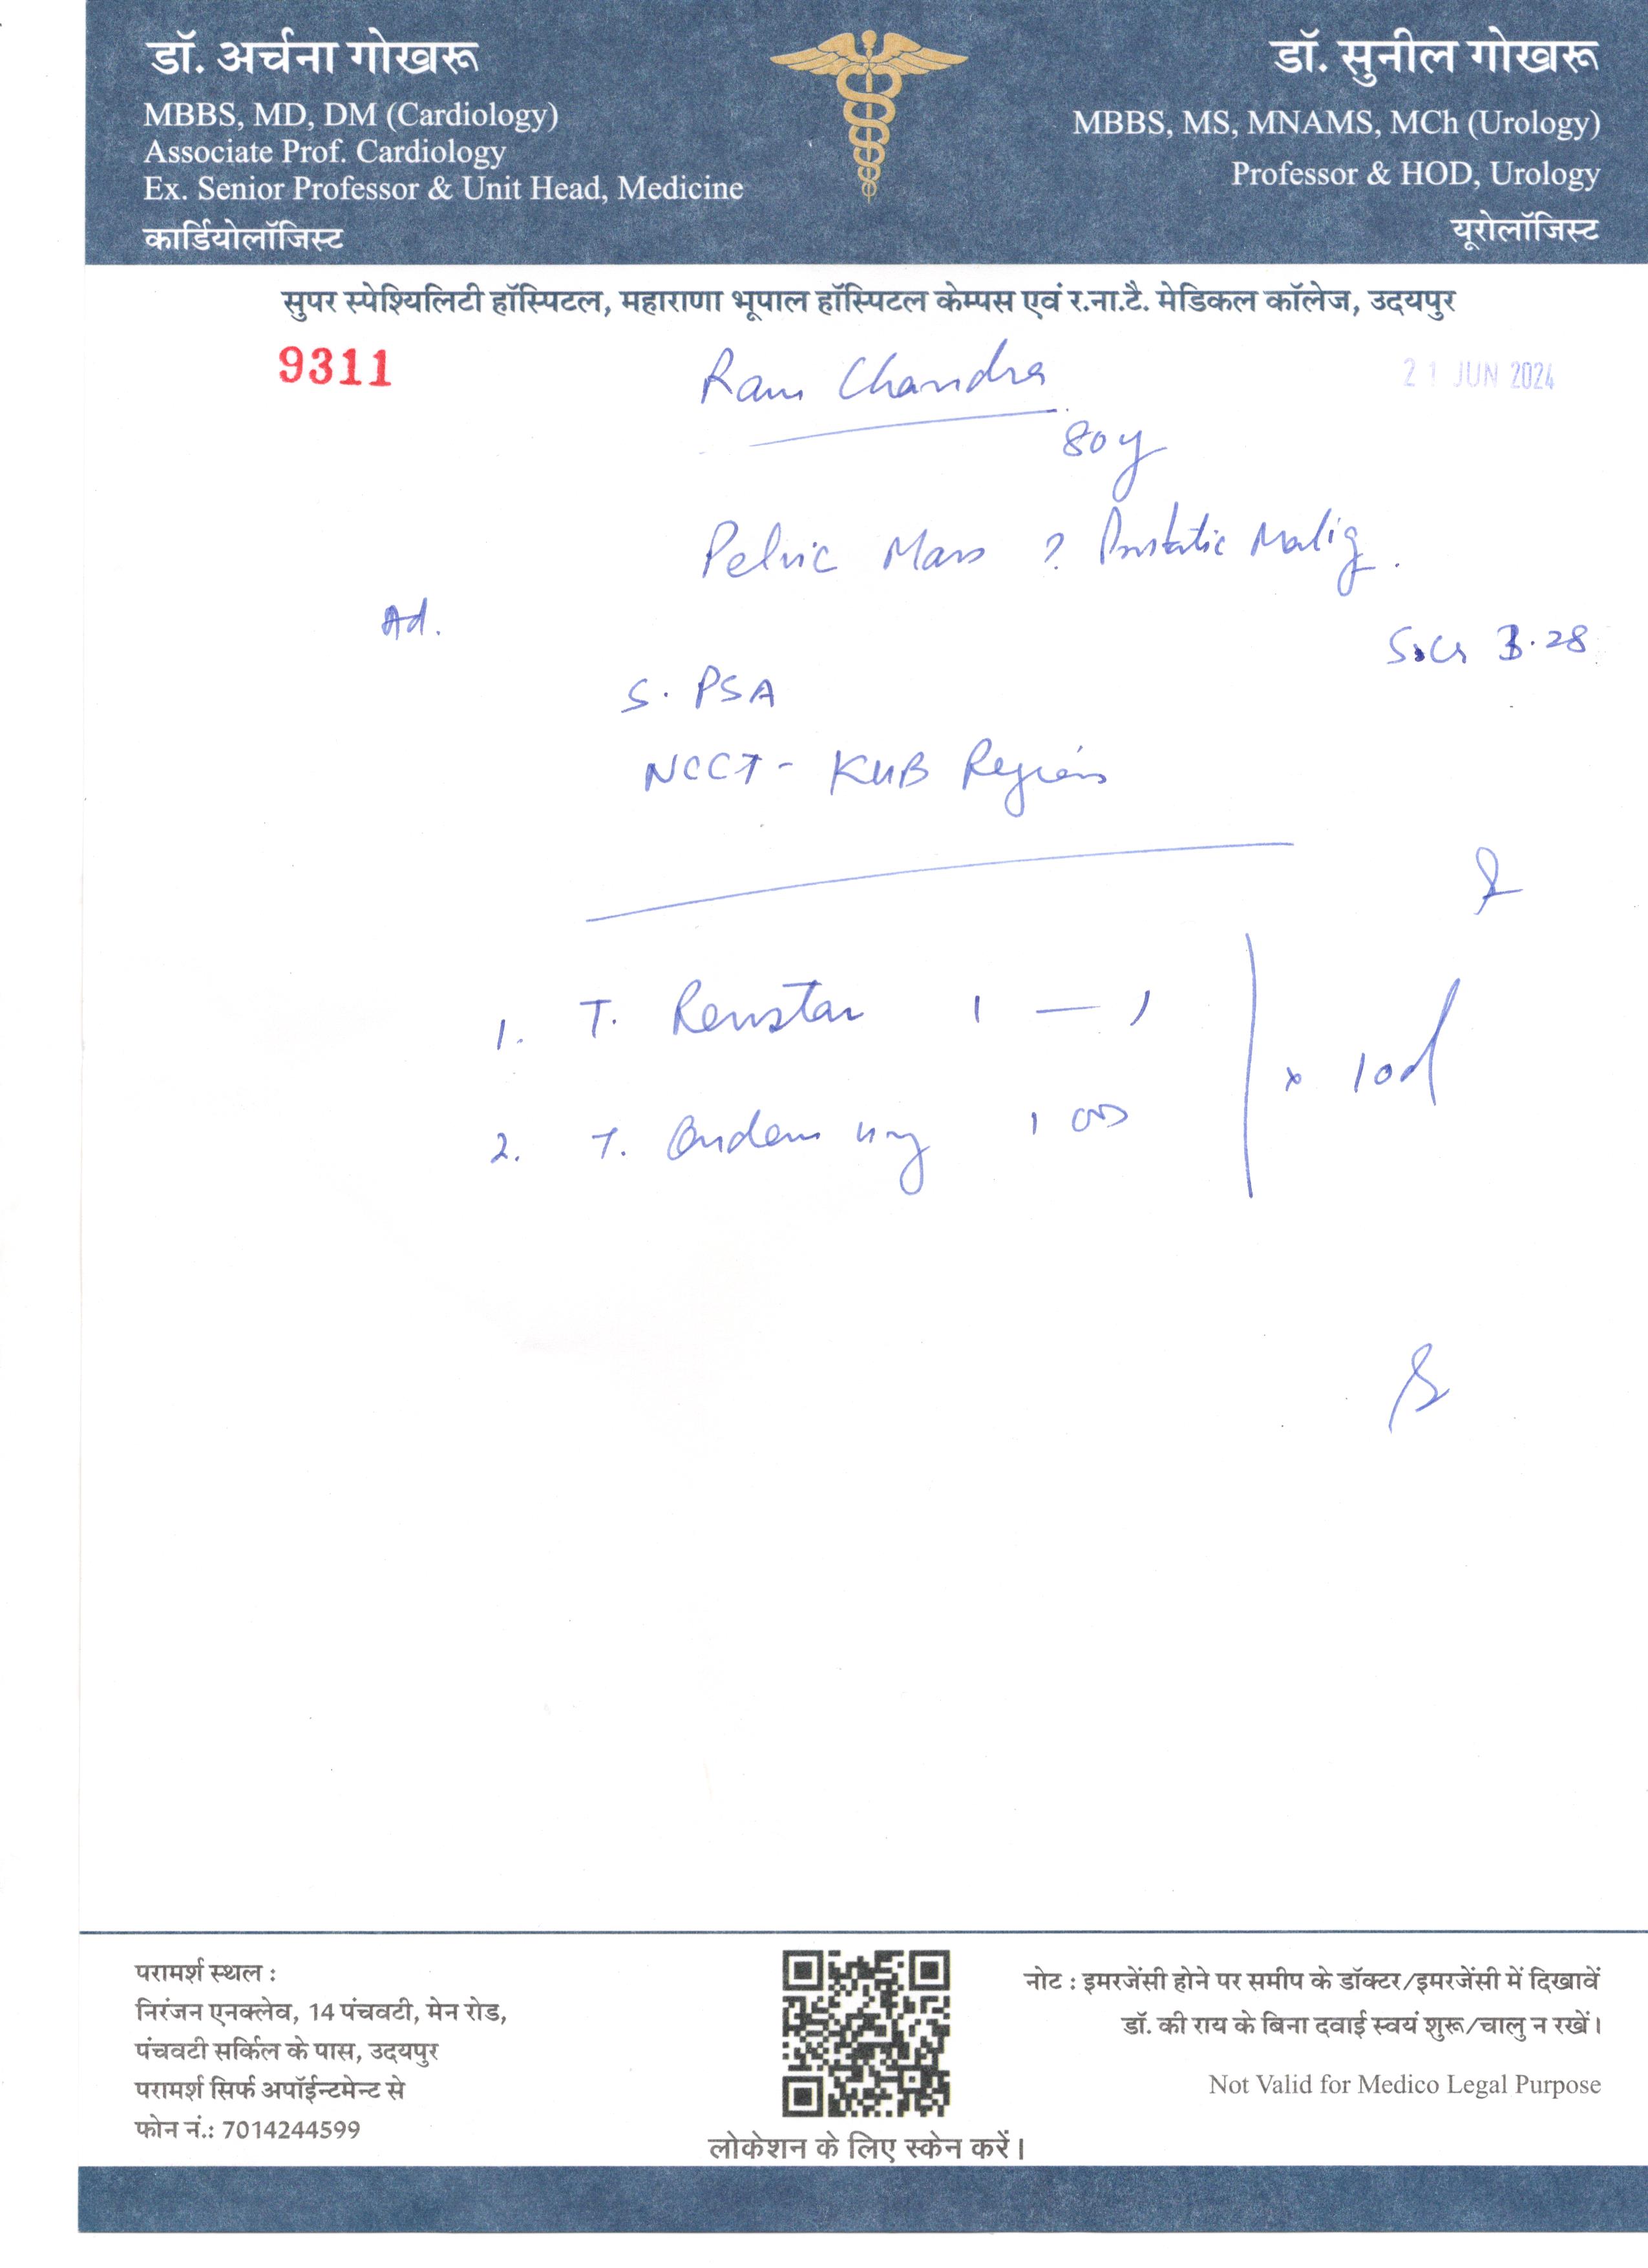 डॉ. अर्चना गोखरू
MBBS, MD, DM (Cardiology)
Associate Prof. Cardiology
Ex. Senior Professor & Unit Head, Medicine
कार्डियोलॉजिस्ट
डॉ. सुनील गोखरू
MBBS, MS, MNAMS, MCh (Urology)
Professor & HOD, Urology
यूरोलॉजिस्ट
सुपर स्पेश्यिलिटी हॉस्पिटल, महाराणा भूपाल हॉस्पिटल केम्पस एवं र.ना.टै. मेडिकल कॉलेज, उदयपुर
9311
21 JUN 2024
Ram Chandra
80y
Pelvic Mass ? Prostatic Malig.
Ad.
S.Cr 3.28
S. PSA
NCCT - KUB Region
1. T. Renstar 1 — 1
2. T. 1 OD
x 10d
परामर्श स्थल :
निरंजन एनक्लेव, 14 पंचवटी, मेन रोड,
पंचवटी सर्किल के पास, उदयपुर
परामर्श सिर्फ अपॉईन्टमेन्ट से
फोन नं.: 7014244599
लोकेशन के लिए स्केन करें।
नोट : इमरजेंसी होने पर समीप के डॉक्टर/इमरजेंसी में दिखावें
डॉ. की राय के बिना दवाई स्वयं शुरू/चालु न रखें।
Not Valid for Medico Legal Purpose